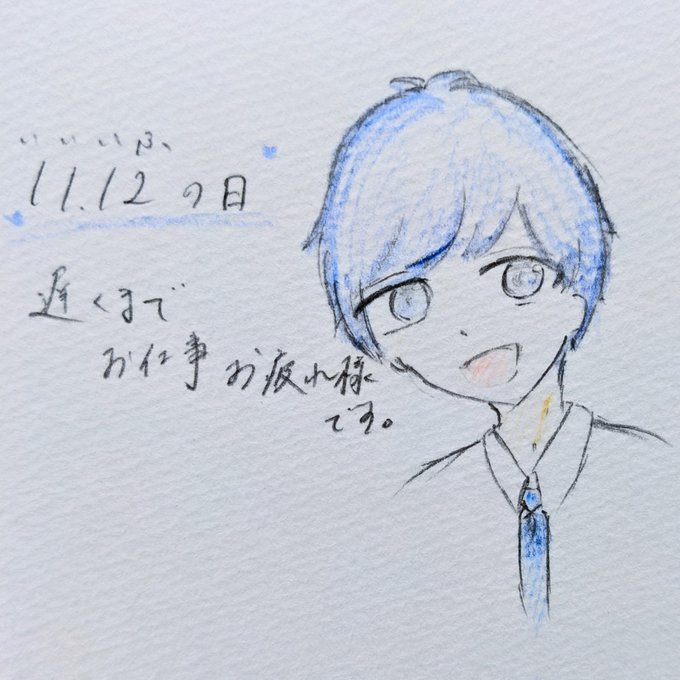 いいいふ
11.12の日
遅くまで
お仕事 お疲れ様
です。